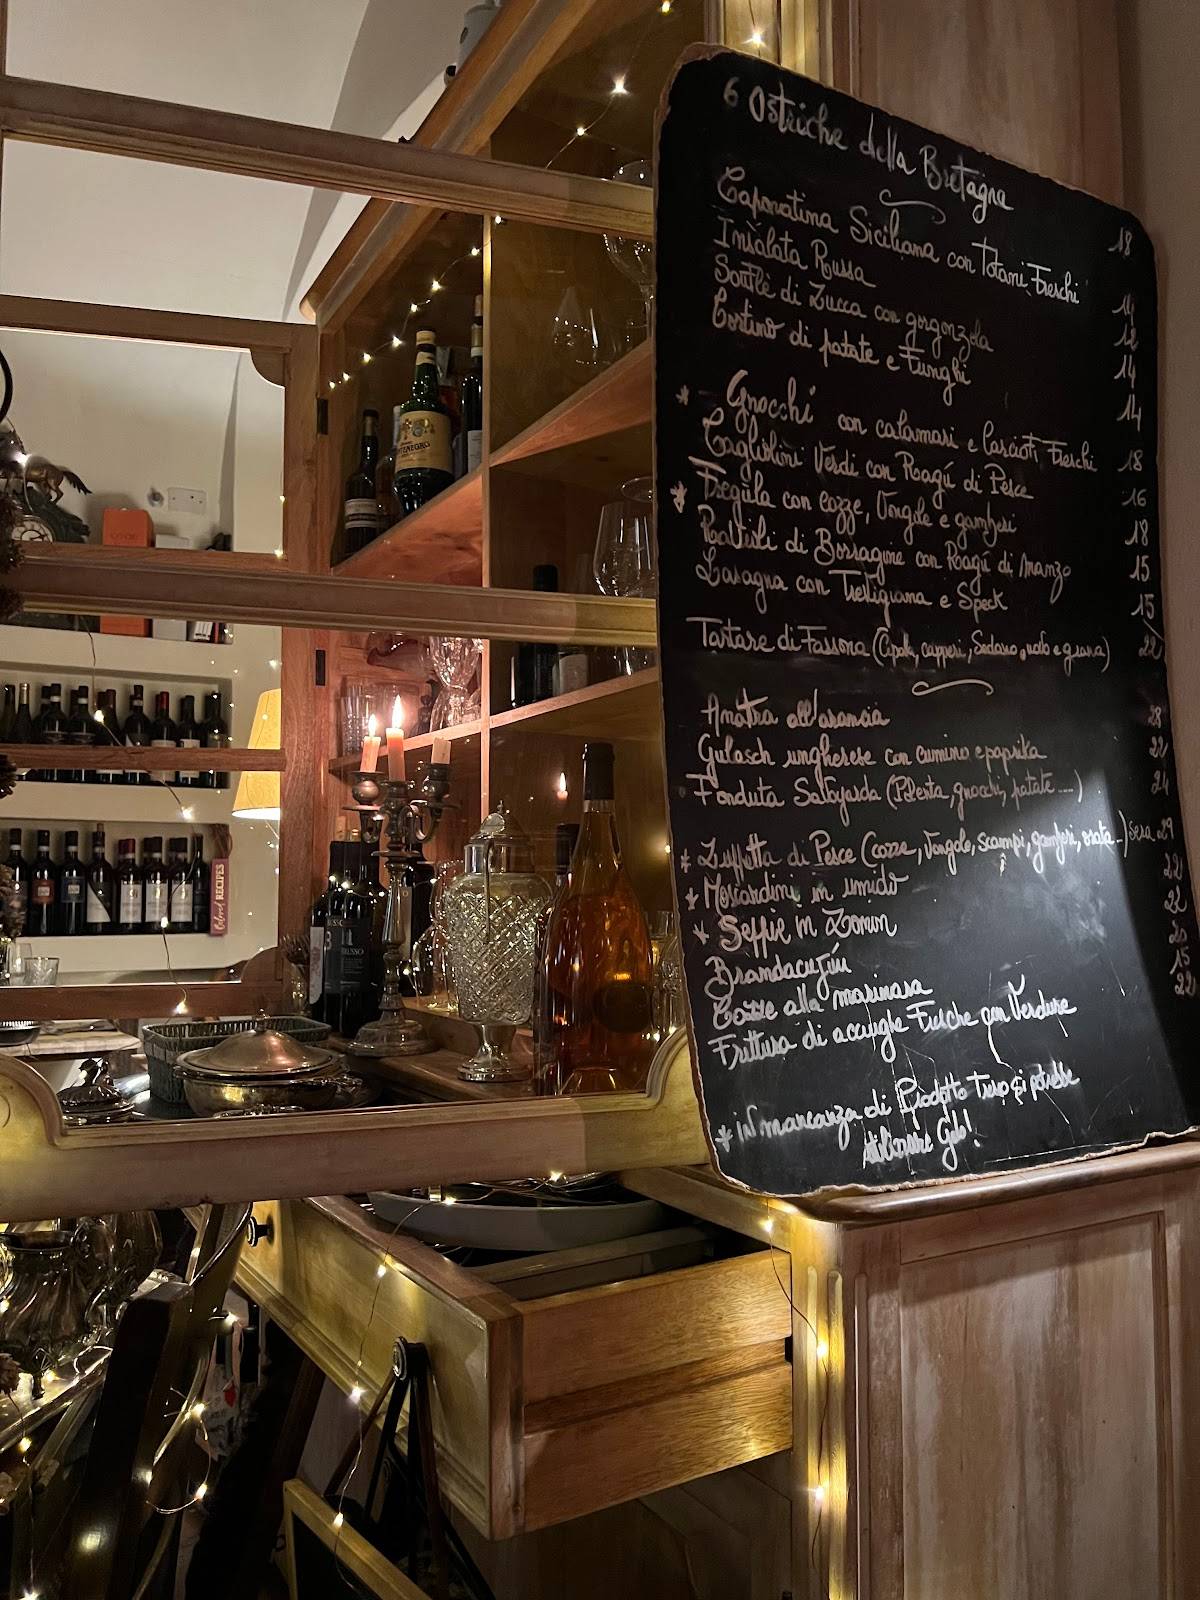 6 Ostriche della Bretagna 18
Caponatina Siciliana con Totani Freschi 14
Insalata Russa 12
Souflè di Zucca con gorgonzola 14
Tortino di patate e Funghi 14
* Gnocchi con calamari e Carciofi Freschi 18
Tagliolini Verdi con Ragù di Pesce 16
* Fregula con cozze, Vongole e gamberi 18
Ravioli di Borragine con Ragù di Manzo 15
Lasagna con Trevigiana e Speck 15
Tartare di Fassona (Cipolla, capperi, Sedano, uovo e grana) 22
Anatra all'arancia 28
Gulasch ungherese con cumino e paprika 22
Fonduta Savoyarda (Polenta, gnocchi, patate ....) 24
* Zuppetta di Pesce (cozze, Vongole, scampi, gamberi, orata..) 29
* Moscardini in umido 22
* Seppie in Zimin 22
Brandacujùn 20
Cozze alla marinara 15
Frittura di acciughe Fresche con Verdure 22
* in mancanza di Prodotto si potrebbe
utilizzare Gelo!
MONTENEGRO
RECIPES